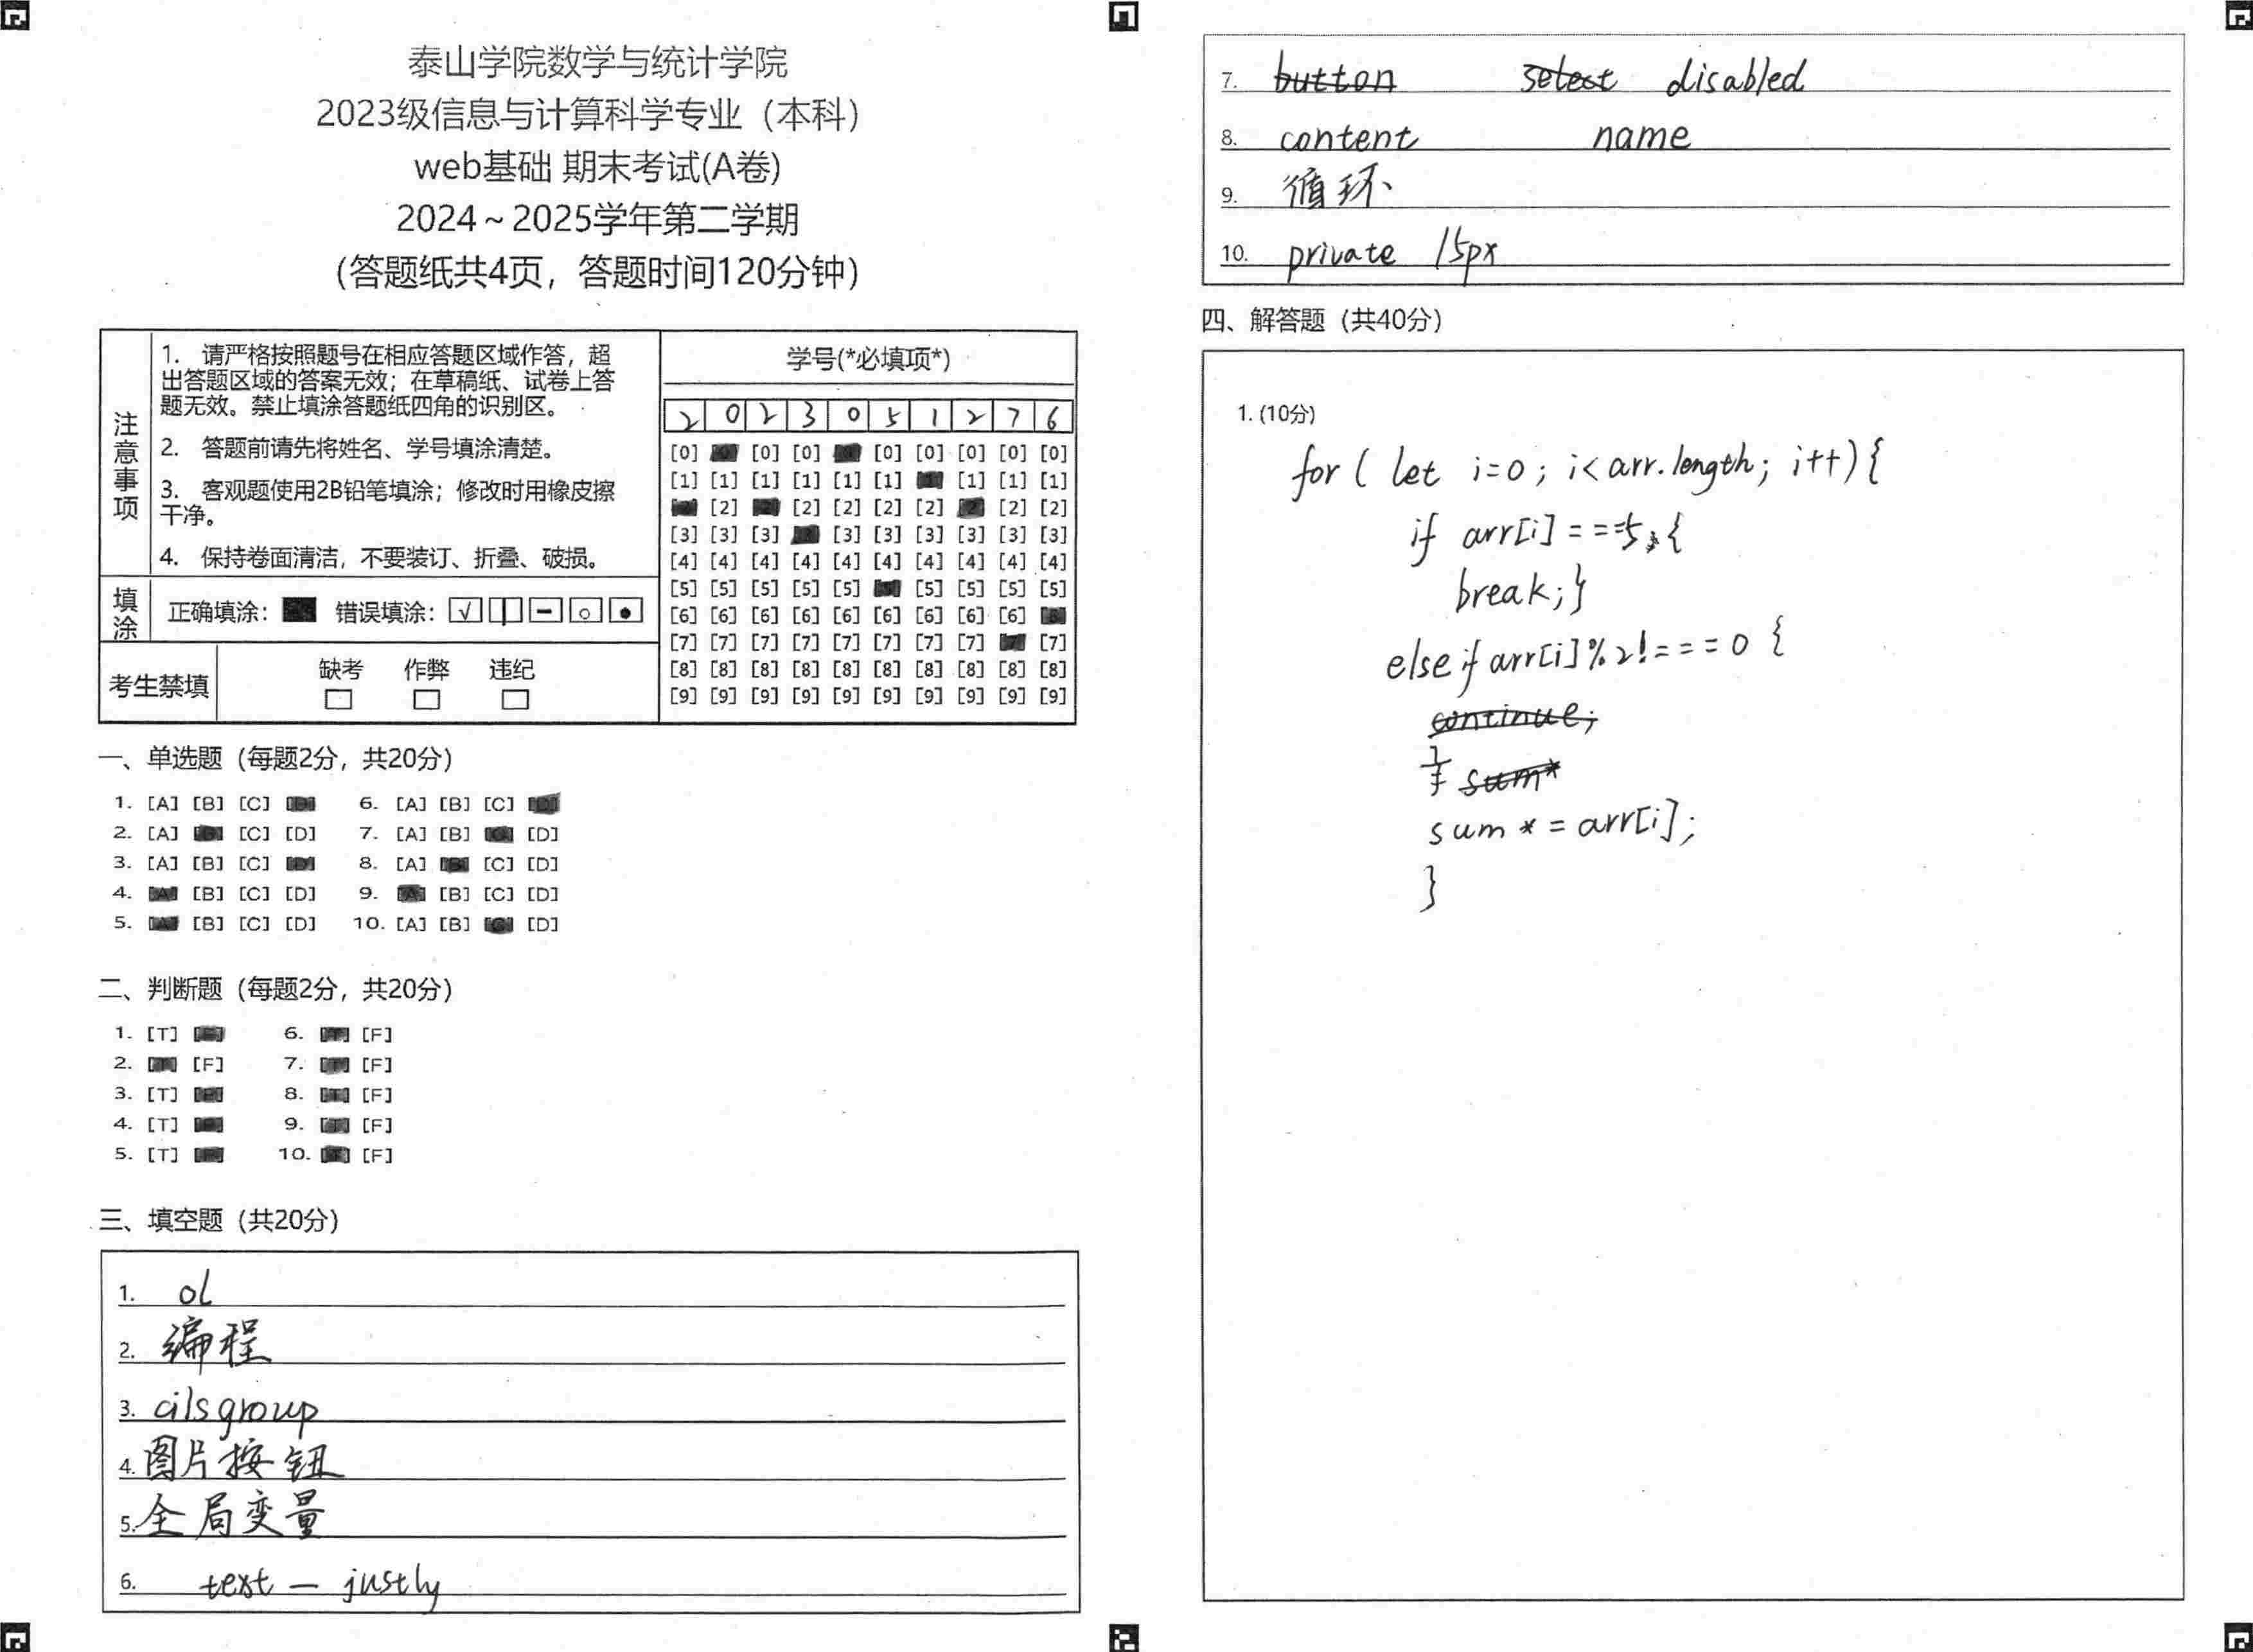 泰山学院数学与统计学院
2023级信息与计算科学专业（本科）
web基础 期末考试(A卷)
2024～2025学年第二学期
（答题纸共4页，答题时间120分钟）
注意事项
1. 请严格按照题号在相应答题区域作答，超
出答题区域的答案无效；在草稿纸、试卷上答
题无效。禁止填涂答题纸四角的识别区。
2. 答题前请先将姓名、学号填涂清楚。
3. 客观题使用2B铅笔填涂；修改时用橡皮擦
干净。
4. 保持卷面清洁，不要装订、折叠、破损。
填涂 正确填涂： 错误填涂：
考生禁填 缺考 作弊 违纪
学号(*必填项*)
2 0 2 3 0 5 1 2 7 6
[0] [0] [0] [0] [0] [0] [0] [0]
[1] [1] [1] [1] [1] [1] [1] [1] [1]
[2] [2] [2] [2] [2] [2] [2]
[3] [3] [3] [3] [3] [3] [3] [3] [3]
[4] [4] [4] [4] [4] [4] [4] [4] [4] [4]
[5] [5] [5] [5] [5] [5] [5] [5] [5]
[6] [6] [6] [6] [6] [6] [6] [6] [6]
[7] [7] [7] [7] [7] [7] [7] [7] [7]
[8] [8] [8] [8] [8] [8] [8] [8] [8] [8]
[9] [9] [9] [9] [9] [9] [9] [9] [9] [9]
一、单选题（每题2分，共20分）
1. [A] [B] [C] 6. [A] [B] [C]
2. [A] [C] [D] 7. [A] [B] [D]
3. [A] [B] [C] 8. [A] [C] [D]
4. [B] [C] [D] 9. [B] [C] [D]
5. [B] [C] [D] 10. [A] [B] [D]
二、判断题（每题2分，共20分）
1. [T] 6. [F]
2. [F] 7. [F]
3. [T] 8. [F]
4. [T] 9. [F]
5. [T] 10. [F]
三、填空题（共20分）
1. ol
2. 编程
3. cilsgroup
4. 图片按钮
5. 全局变量
6. text — justly
7. button select disabled
8. content name
9. 循环
10. private 15px
四、解答题（共40分）
1. (10分)
for ( let i=0; i< arr.length; i++){
if arr[i] ===5 {
break;}
else if arr[i]%2!===0 {
continue;
} sum*
sum *= arr[i];
}